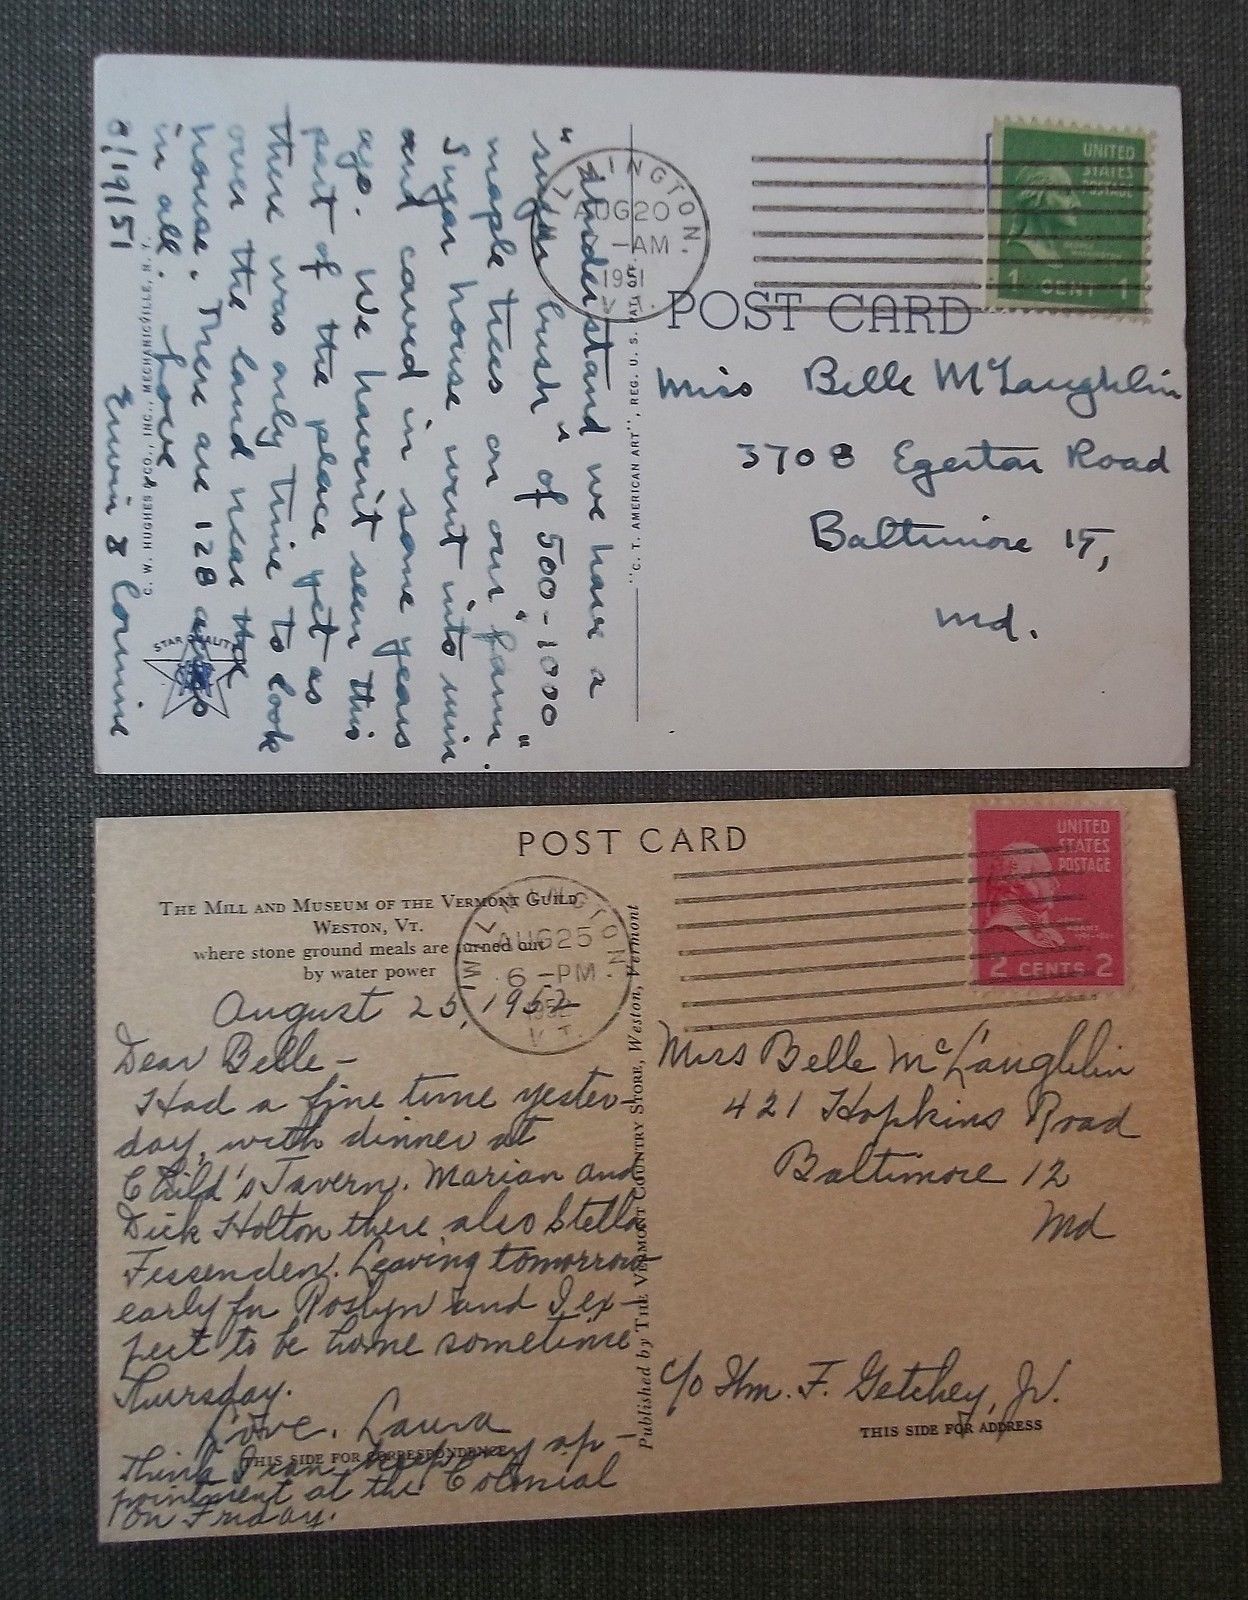 I understand we have a
"sugar bush" of 500-1000
maple trees on our "farm".
Sugar house went into ruin
and caved in some years
ago. We haven't seen this
part of the place yet as
there was only time to look
over the land near the
house. There are 128 acres
in all.
Love
Erwin & Corinne
8/19/51
C. W. HUGHES & CO., INC., MECHANICVILLE, N. Y.
STAR QUALITY
"C. T. AMERICAN ART", REG. U. S. PAT. OFF.
WILMINGTON.
AUG 20
-AM
1951
VT.
UNITED
STATES
POSTAGE
1 CENT 1
POST CARD
Miss Belle McLaughlin
3708 Egerton Road
Baltimore 15,
Md.
POST CARD
THE MILL AND MUSEUM OF THE VERMONT GUILD
WESTON, VT.
where stone ground meals are turned out
by water power
WILMINGTON
AUG 25
6-PM
1952
VT.
UNITED
STATES
POSTAGE
ADAMS
2 CENTS 2
August 25, 1952
Dear Belle-
Had a fine time yester-
day, with dinner at
Child's Tavern. Marian and
Dick Holton there, also Stella
Fessenden. Leaving tomorrow
early for Roslyn and I ex-
pect to be home sometime
Thursday.
Love, Laura
THIS SIDE FOR CORRESPONDENCE
Think I can keep my ap-
pointment at the Colonial
on Friday.
Published by THE VERMONT COUNTRY STORE, Weston, Vermont
Miss Belle McLaughlin
421 Hopkins Road
Baltimore 12
Md
c/o Wm. F. Getchey, Jr.
THIS SIDE FOR ADDRESS